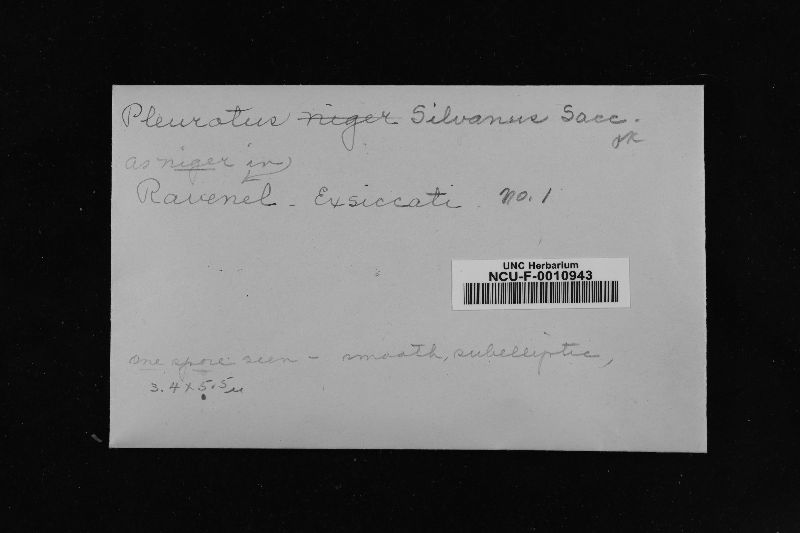 Pleurotus niger Silvanus Sacc.
ok
as niger in
Ravenel - Exsiccati. No. 1
UNC Herbarium
NCU-F-0010943
one spore seen - smooth, subelliptic,
3.4 x 5.5µ